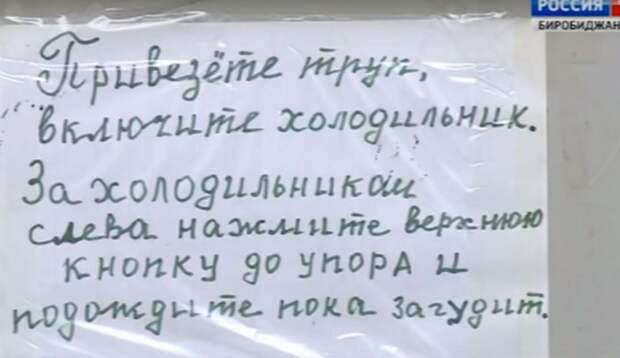 РОССИЯ
БИРОБИДЖАН
Привезёте труп,
включите холодильник.
За холодильником
слева нажмите верхнюю
кнопку до упора и
подождите пока загудит.